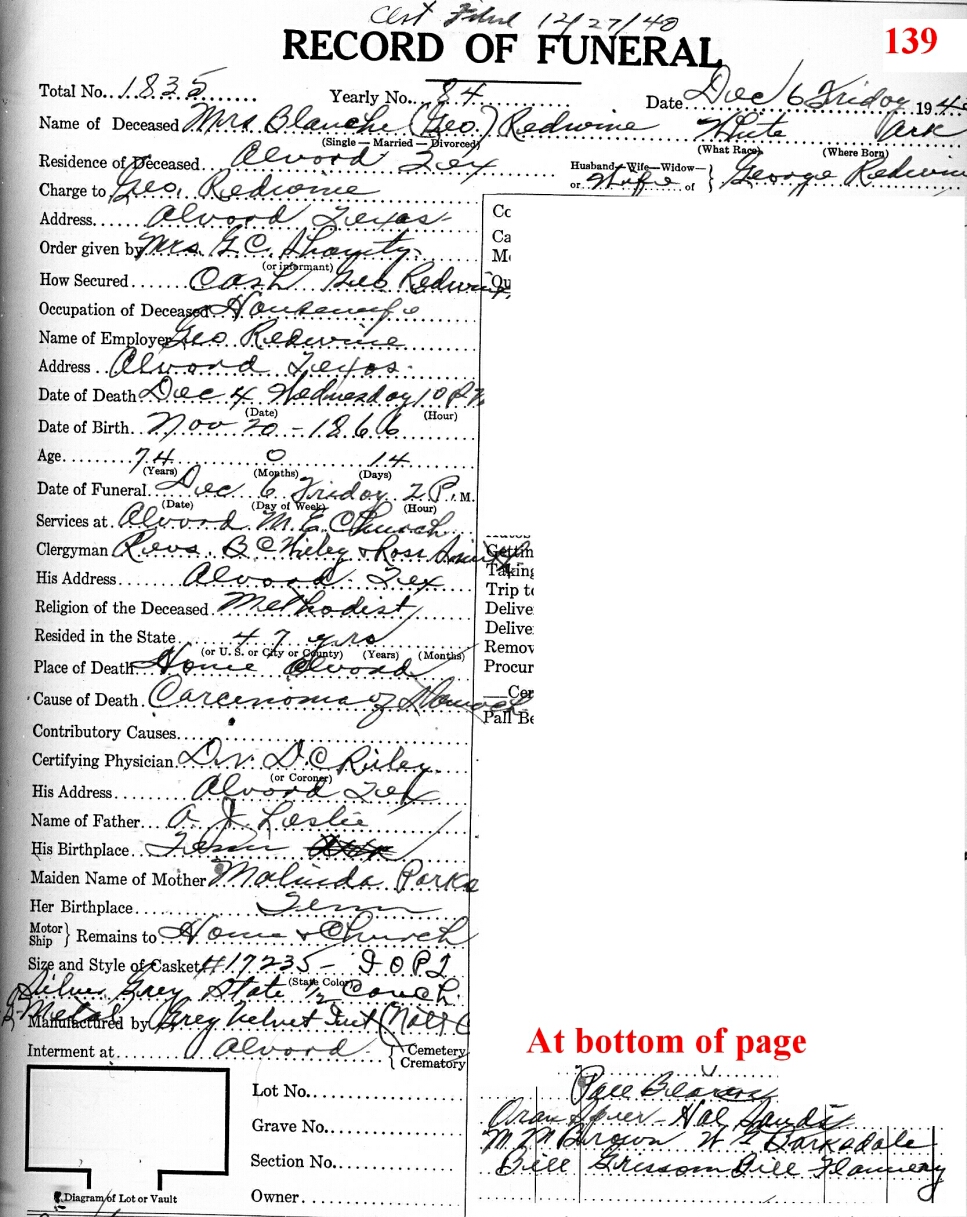 Cert Filed 12/27/40
139
RECORD OF FUNERAL
Total No. 1835 Yearly No. 84 Date Dec 6 Friday 194
Name of Deceased Mrs Blanche (Geo.) Redwine White Ark
(Single — Married — Divorced) (What Race) (Where Born)
Residence of Deceased Alvord Tex Husband—Wife—Widow— or Wife of } George Redwin
Charge to Geo. Redwine
Address Alvord Texas
Order given by Mrs. G.C.
(or informant)
How Secured Cash Geo Redwine
Occupation of Deceased Housewife
Name of Employer Geo Redwine
Address Alvord Texas
Date of Death Dec 4 Wednesday 10 P M
(Date) (Hour)
Date of Birth Nov 20 - 1866
Age 74 0 14
(Years) (Months) (Days)
Date of Funeral Dec 6 Friday 2 P. M.
(Date) (Day of Week) (Hour)
Services at Alvord M.E. Church
Clergyman Revs. & Ross Smith
His Address Alvord Tex
Religion of the Deceased Methodist
Resided in the State 47 yrs
(or U. S. or City or County) (Years) (Months)
Place of Death Home Alvord
Cause of Death Carcenoma of Stomach
Contributory Causes
Certifying Physician Dr. D.C. Riley
(or Coroner)
His Address Alvord Tex
Name of Father A J Leslie
His Birthplace Tenn
Maiden Name of Mother Malinda Parks
Her Birthplace Tenn
Motor Ship } Remains to Home & Church
Size and Style of Casket #17235 -
(State Color)
Silver Grey State 1/2 Couch
Metal Manufactured by Grey Velvet Int (Natl C
Interment at Alvord { Cemetery Crematory
Lot No.
Grave No.
Section No.
Owner
Diagram of Lot or Vault
Cc
Ca
M
Qu
Gettin
Taking
Trip to
Delive
Delive
Remov
Procur
Cer
Pall Be
At bottom of page
Pall Bearers
Oran Speer - Hal Sands
M M Brown W G Barksdale
Bill Grissom Bill Flannery